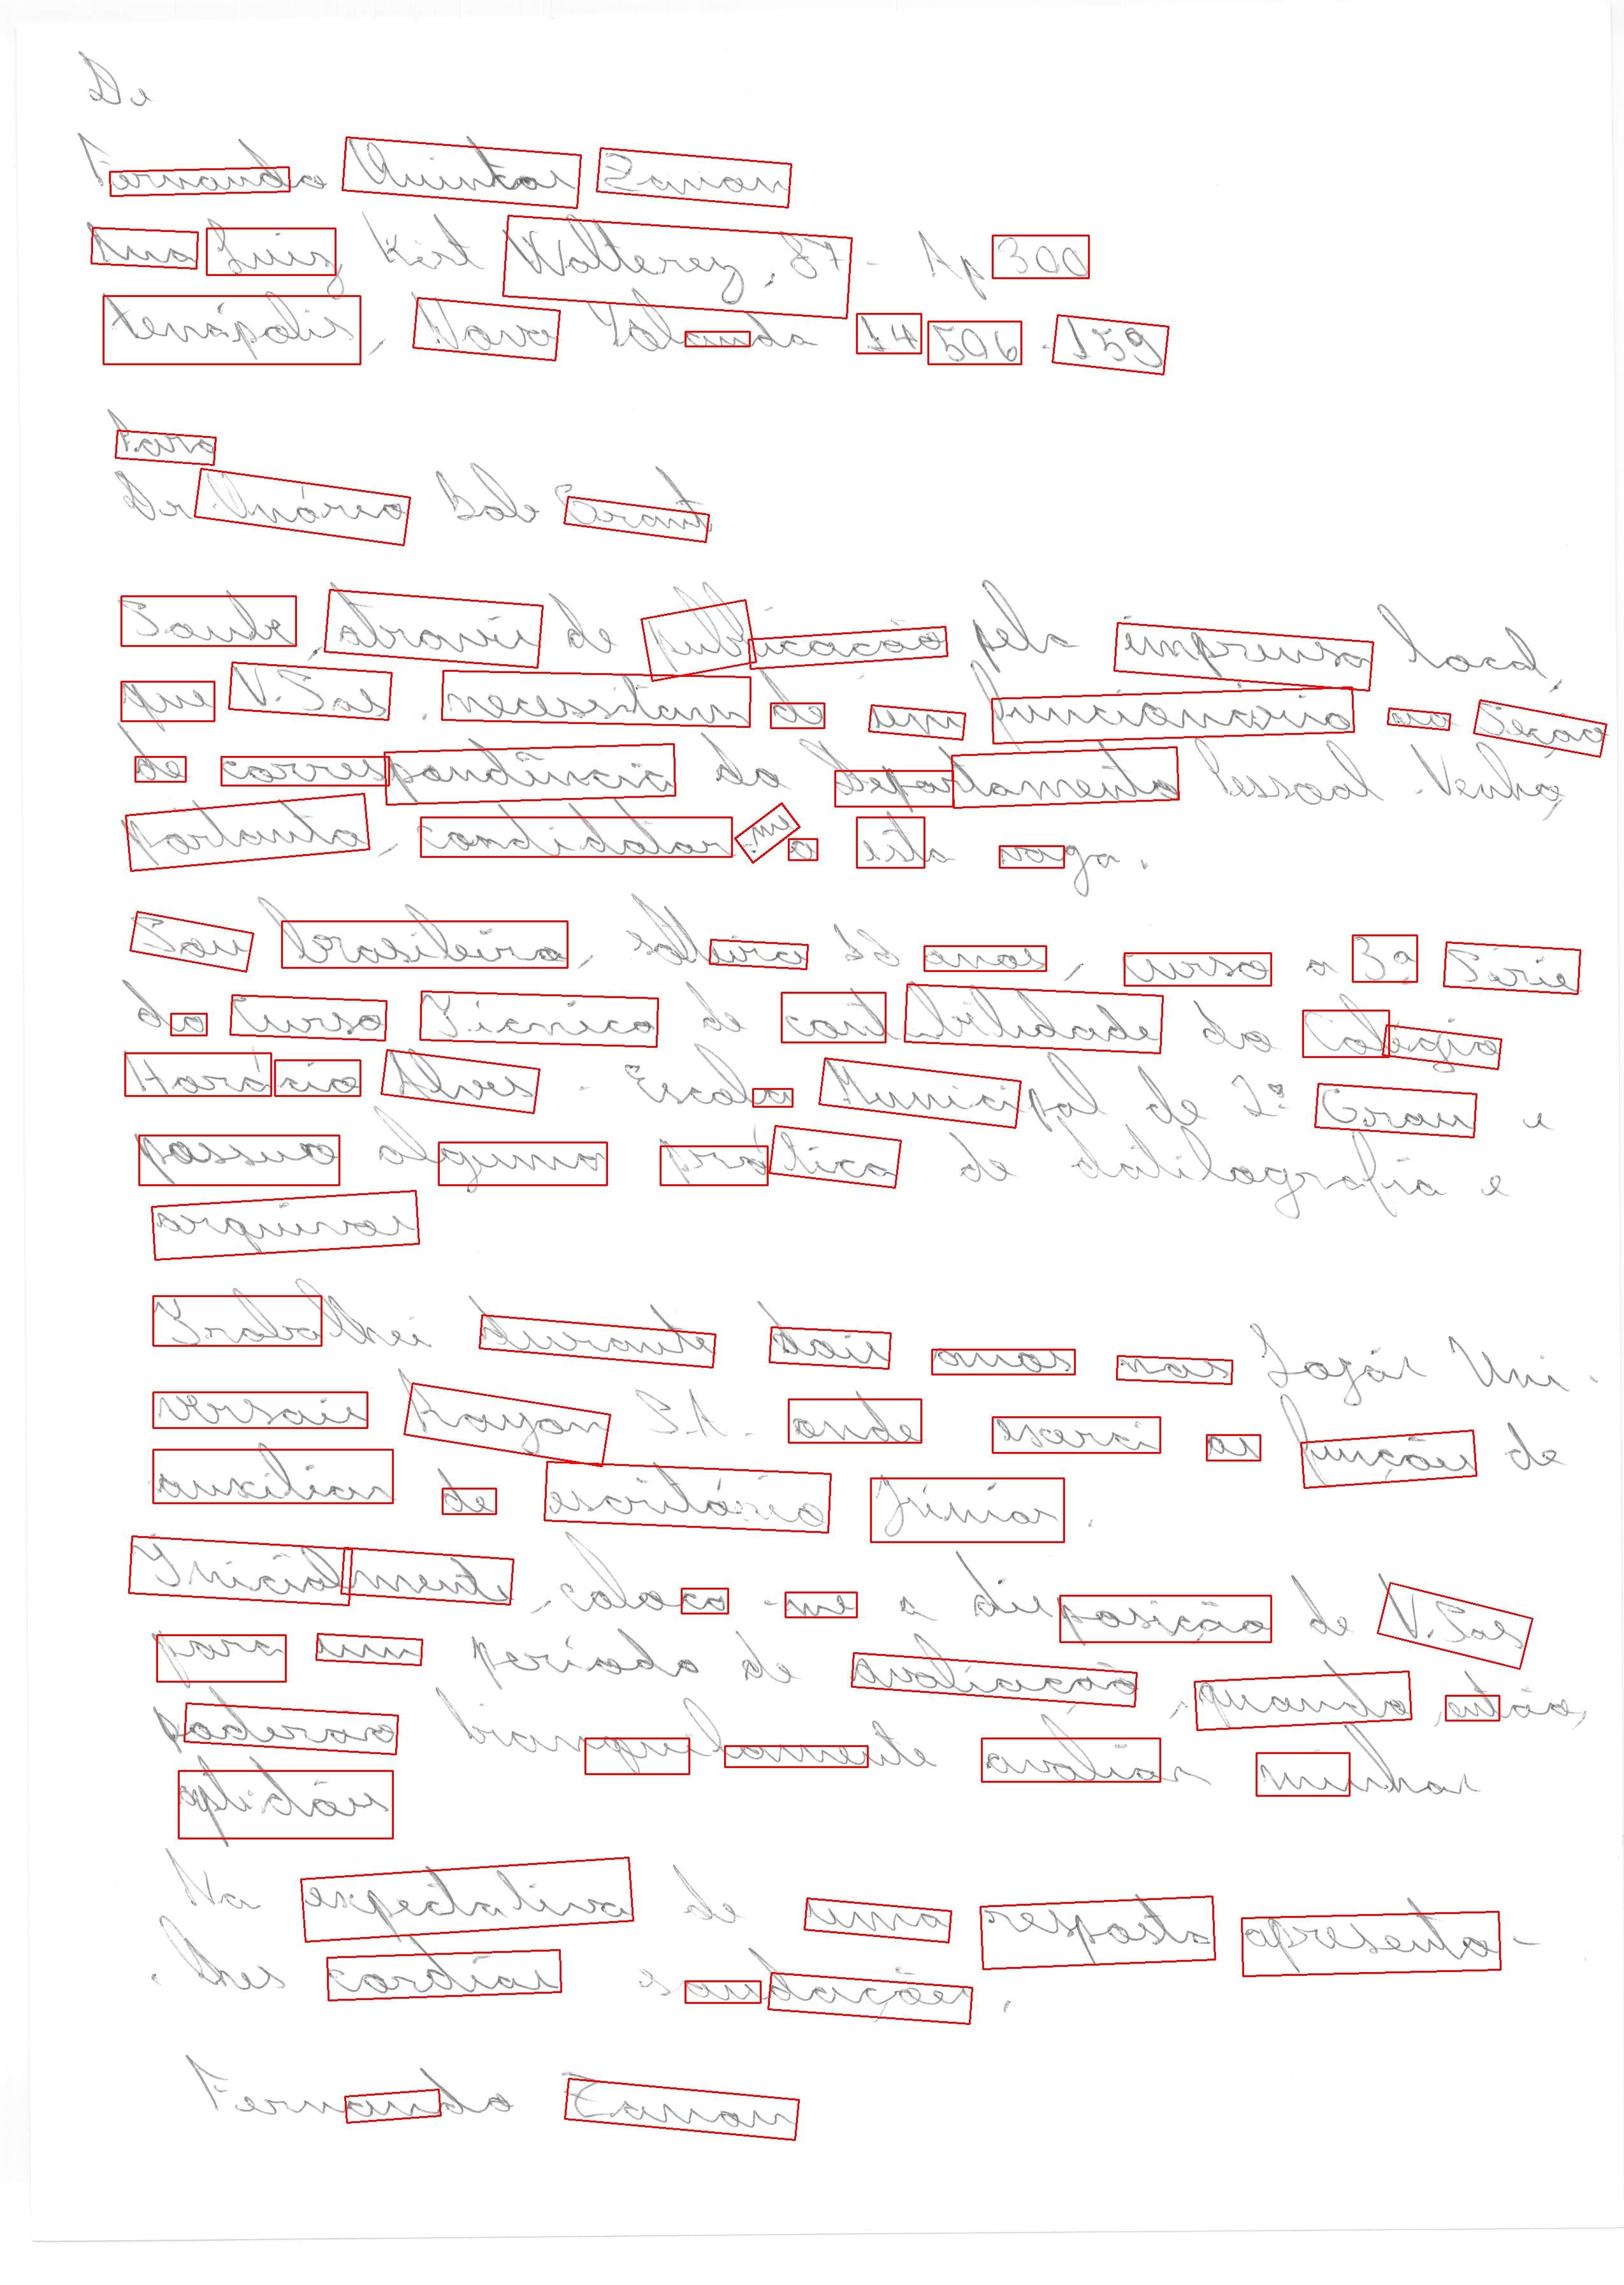 De
Fernando Quintas Zanon
Rua Luiz Kert Walterez, 87 - Ap 300
tenópolis, Nova Yolanda 14506-159
Para
Dr. Onório Dale Grant
Soube, através de publicação pela imprensa local,
que V.Sas. necessitam de um funcionário na Seção
de correspondência do Departamento Pessoal. Venho,
portanto, candidatar-me a esta vaga.
Sou brasileiro, solteiro 18 anos, curso a 3ª Série
do Curso Técnico de contabilidade do Colégio
Horácio Alves - Escola Municipal de 2º Grau e
possuo alguma prática de datilografia e
arquivos
Trabalhei durante dois anos nas Lojas Uni-
versais Rayon S.A. onde exerci as funções de
auxiliar de escritório Júnior.
Inicialmente, coloco-me a disposição de V.Sas
para um período de avaliação, quando, então,
poderão tranquilamente avaliar minhas
aptidões
Na expectativa de uma resposta apresento-
lhes cordiais saudações.
Fernando Zanon